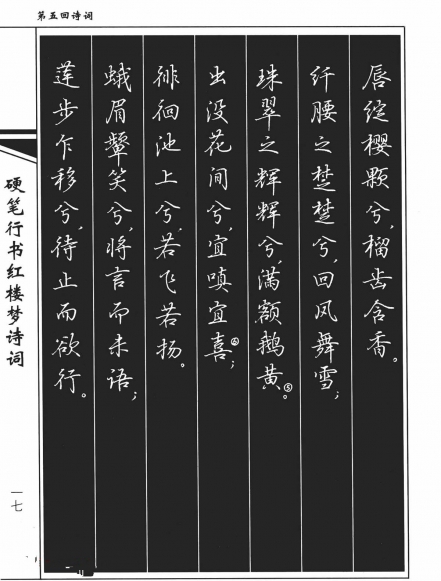 第五回诗词
唇绽樱颗兮，榴齿含香。
纤腰之楚楚兮，回风舞雪；
珠翠之辉辉兮，满额鹅黄⑤。
出没花间兮，宜嗔宜喜④；
徘徊池上兮若飞若扬。
蛾眉颦笑兮，将言而未语；
莲步乍移兮，待止而欲行。
硬笔行书红楼梦诗词
一七